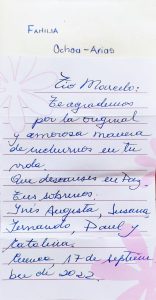 FAMILIA
Ochoa-Arias
Tío Marcelo:
Te agradecemos
por la original
y amorosa manera
de incluirnos en tu
vida
Que descanses en Paz.
Tus sobrinos
Inés Augusta, Susana
Fernando, Paul y
Catalina.
Cuenca 17 de septiem
bre de 2022.